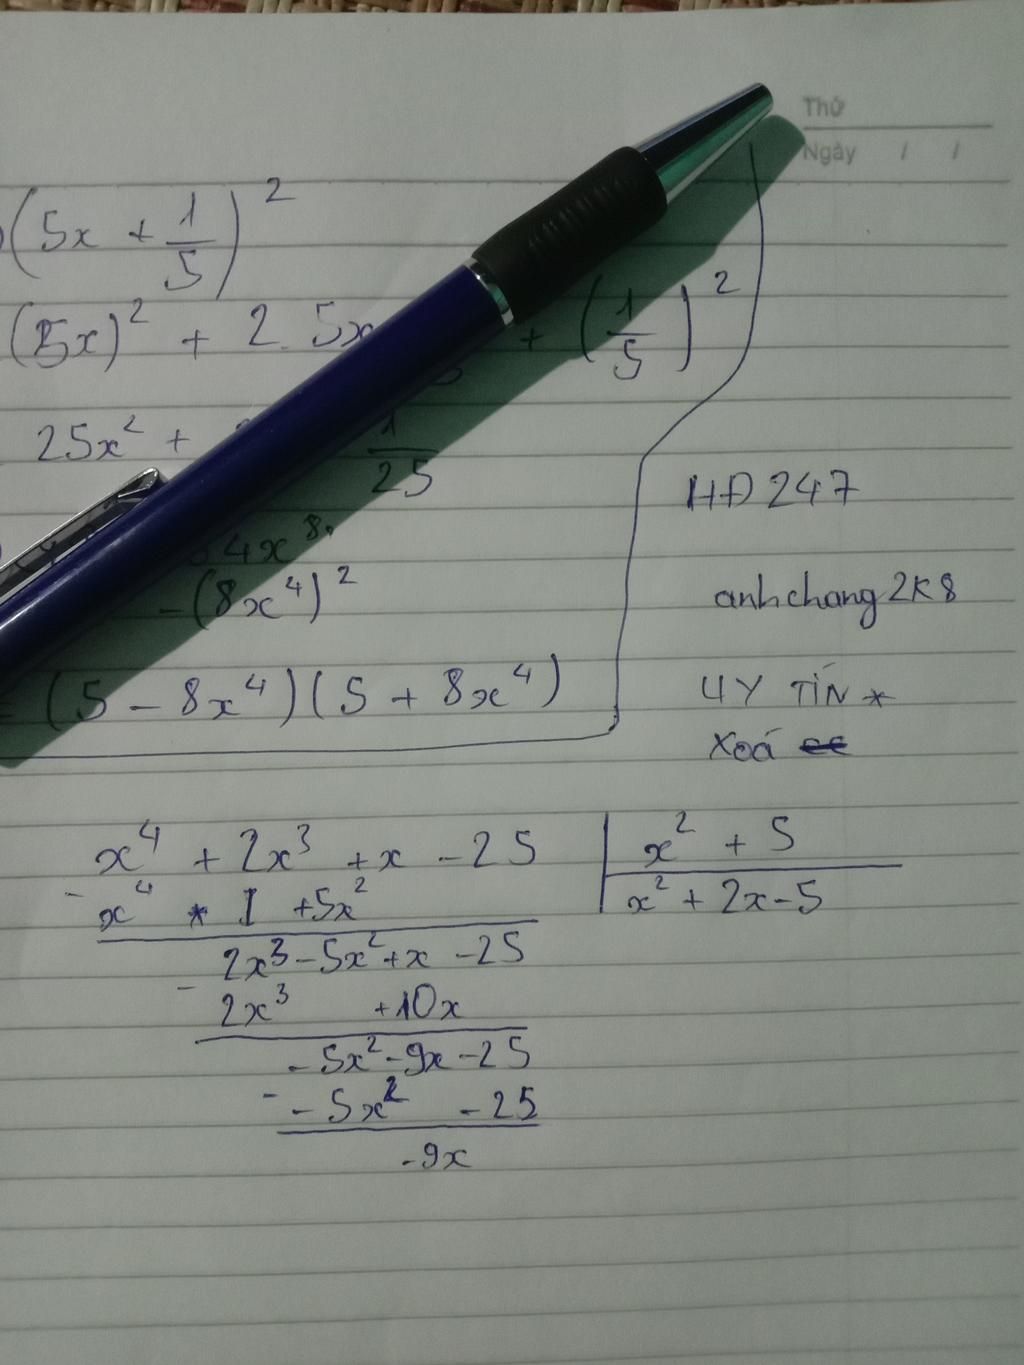 Thứ
Ngày / /
(5x + 1/5)²
(5x)² + 2.5x + (1/5)²
25x² + 1/25
4x⁸
-(8x⁴)²
= (5 - 8x⁴)(5 + 8x⁴)
HĐ247
anhchang2k8
UY TÍN *
Xoá
x⁴ + 2x³ + x - 25 | x² + 5
- x⁴ + 5x² | x² + 2x - 5
2x³ - 5x² + x - 25
- 2x³ + 10x
- 5x² - 9x - 25
- - 5x² - 25
- 9x